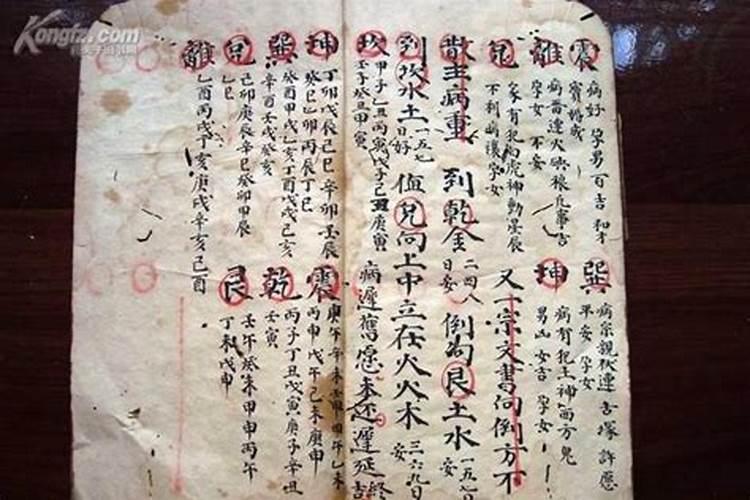 震
病好 孕男百吉 和才
賣婚成
離
病苗連火央粮凡事吉
孕女 不安
兑
家有犯白虎神動星辰
不利病穰孕女
巽
病宗親伏連 古塚許愿
平安 孕女
坤
病有犯土神西方鬼
男凶女吉 孕女
又一宗文書向倒方不
散主病重 到乾金二四八日安 倒向艮土水一五七日安
到坎水土一五七日好 值兑向上中立在火火木三六九日安
坎
甲子乙丑丙寅戊子己丑庚寅
壬子癸丑甲寅
病遲舊愿未还遲延吉
坤
丁卯戊辰己巳辛卯壬辰
癸巳乙卯丙辰丁巳
震
庚午辛未壬申甲午乙未
丙申戊午己未庚申
巽
癸酉甲戌乙亥丁酉戊戌己亥
辛酉壬戌癸亥
乾
丙子丁丑戊寅庚子辛丑
壬寅
兑
己卯庚辰辛巳癸卯甲辰
乙巳
艮
壬午癸未甲申丙午
丁未戊申
離
乙酉丙戌丁亥庚戌辛亥己酉
Kongfz.com